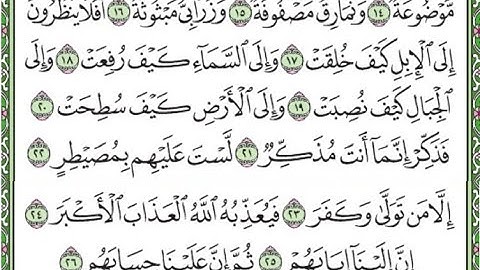 مَّوْضُوعَةٌ ١٤ وَنَمَارِقُ مَصْفُوفَةٌ ١٥ وَزَرَابِيُّ مَبْثُوثَةٌ ١٦ أَفَلَا يَنظُرُونَ
إِلَى الْإِبِلِ كَيْفَ خُلِقَتْ ١٧ وَإِلَى السَّمَاءِ كَيْفَ رُفِعَتْ ١٨ وَإِلَى
الْجِبَالِ كَيْفَ نُصِبَتْ ١٩ وَإِلَى الْأَرْضِ كَيْفَ سُطِحَتْ ٢٠
فَذَكِّرْ إِنَّمَا أَنتَ مُذَكِّرٌ ٢١ لَّسْتَ عَلَيْهِم بِمُصَيْطِرٍ ٢٢
إِلَّا مَن تَوَلَّىٰ وَكَفَرَ ٢٣ فَيُعَذِّبُهُ اللَّهُ الْعَذَابَ الْأَكْبَرَ ٢٤
إِنَّ إِلَيْنَا إِيَابَهُمْ ٢٥ ثُمَّ إِنَّ عَلَيْنَا حِسَابَهُم ٢٦